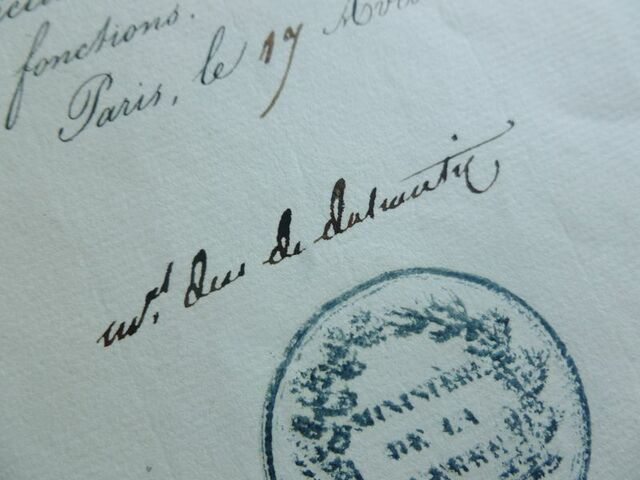 fonctions.
Paris, le 17 Avril
mal duc de dalmatie
MINISTÈRE
DE LA
GUERRE